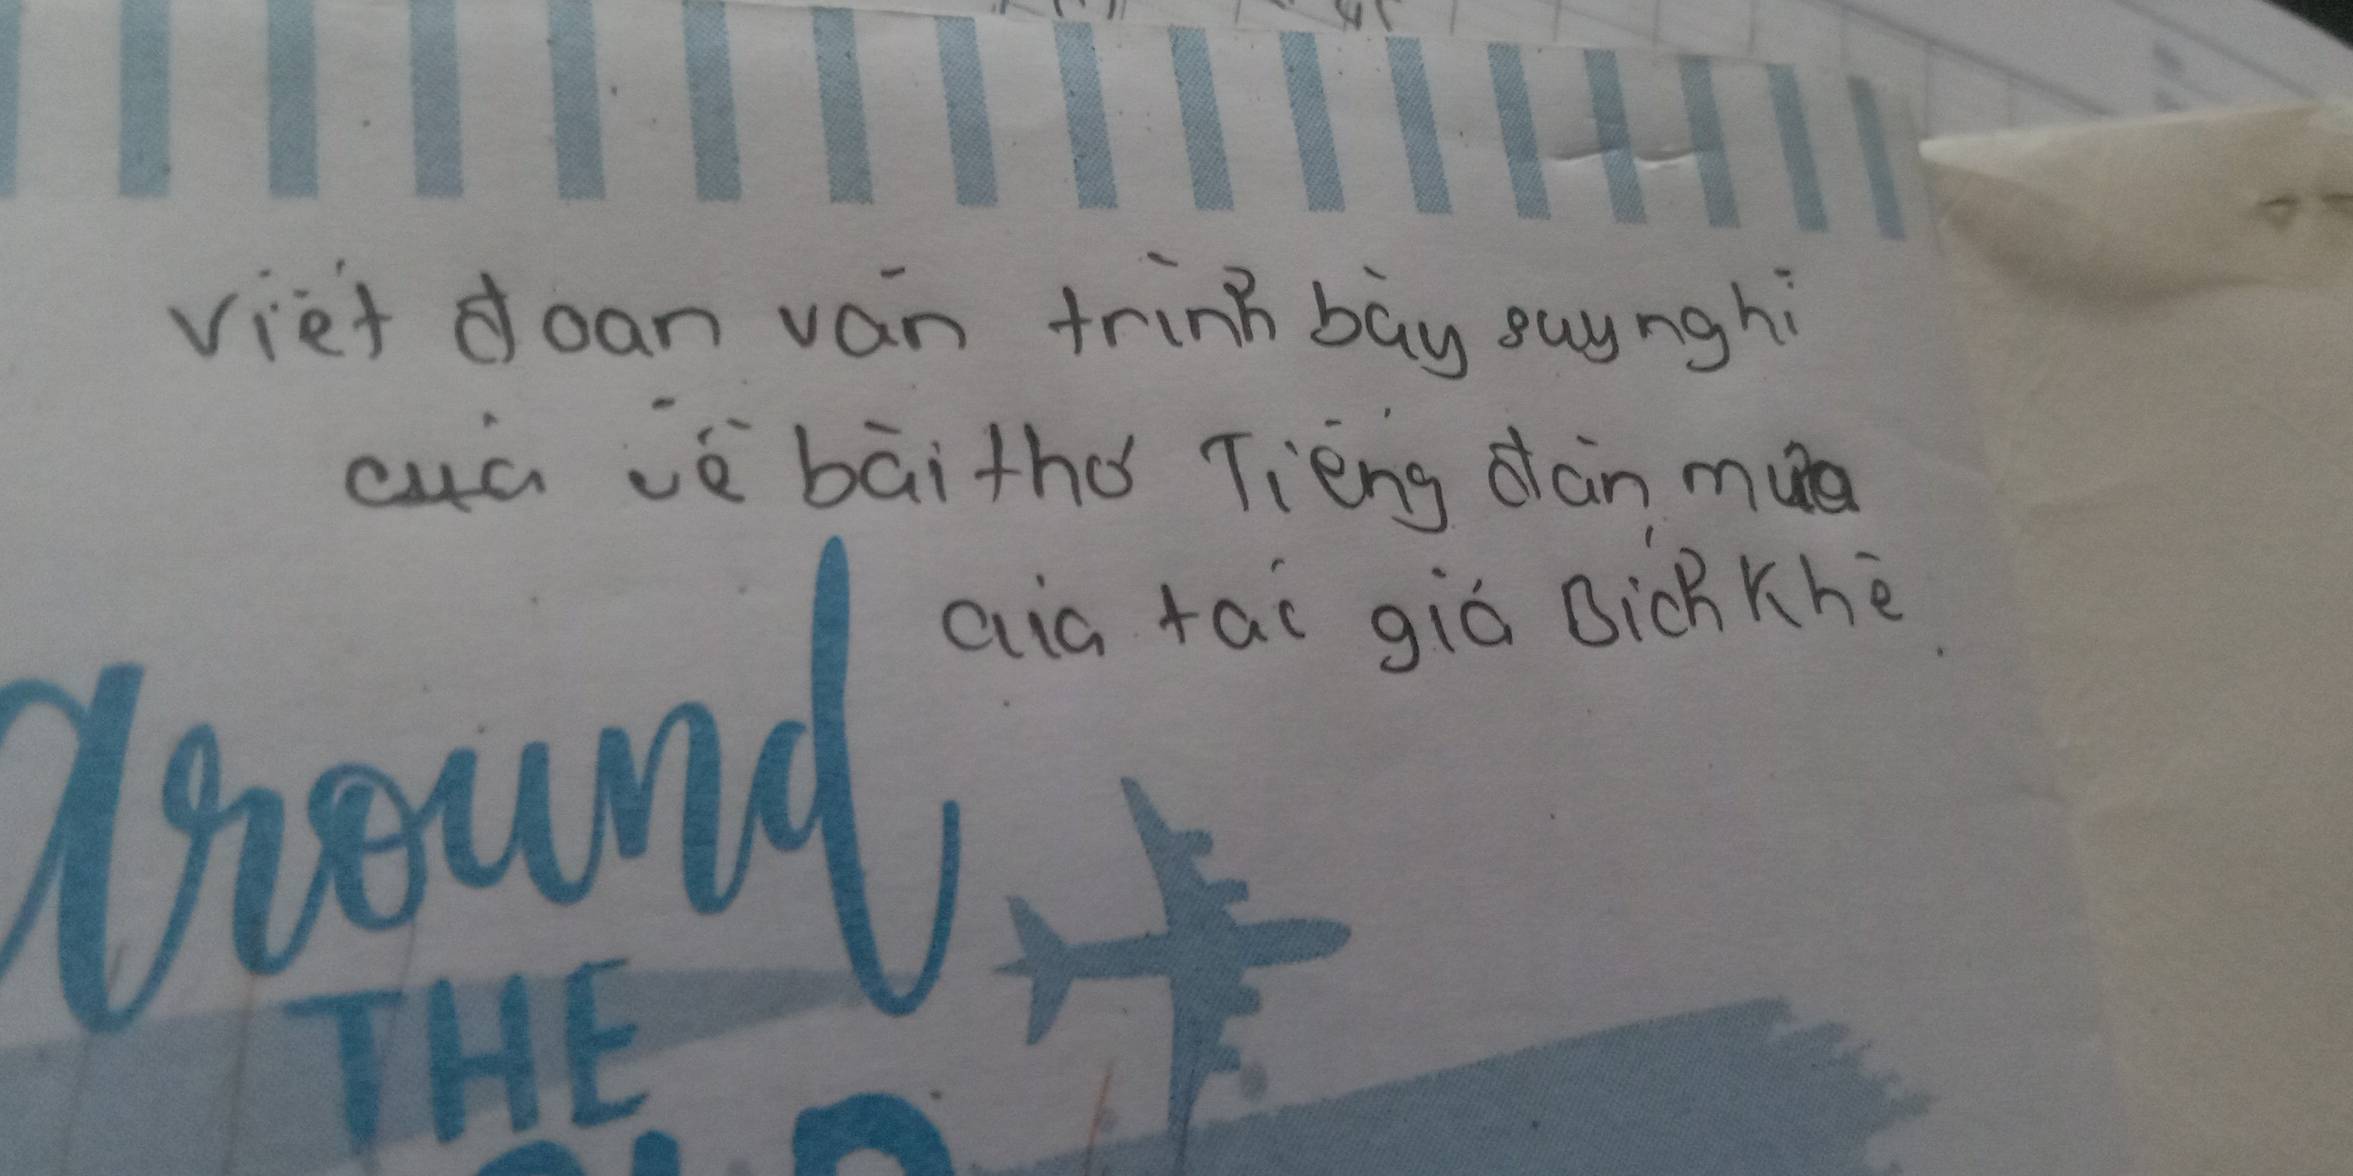 viết đoan văn trình bày suy nghi
của về bài thơ Tiếng đàn mưa
của tác giả Bích Khê.
around
THE